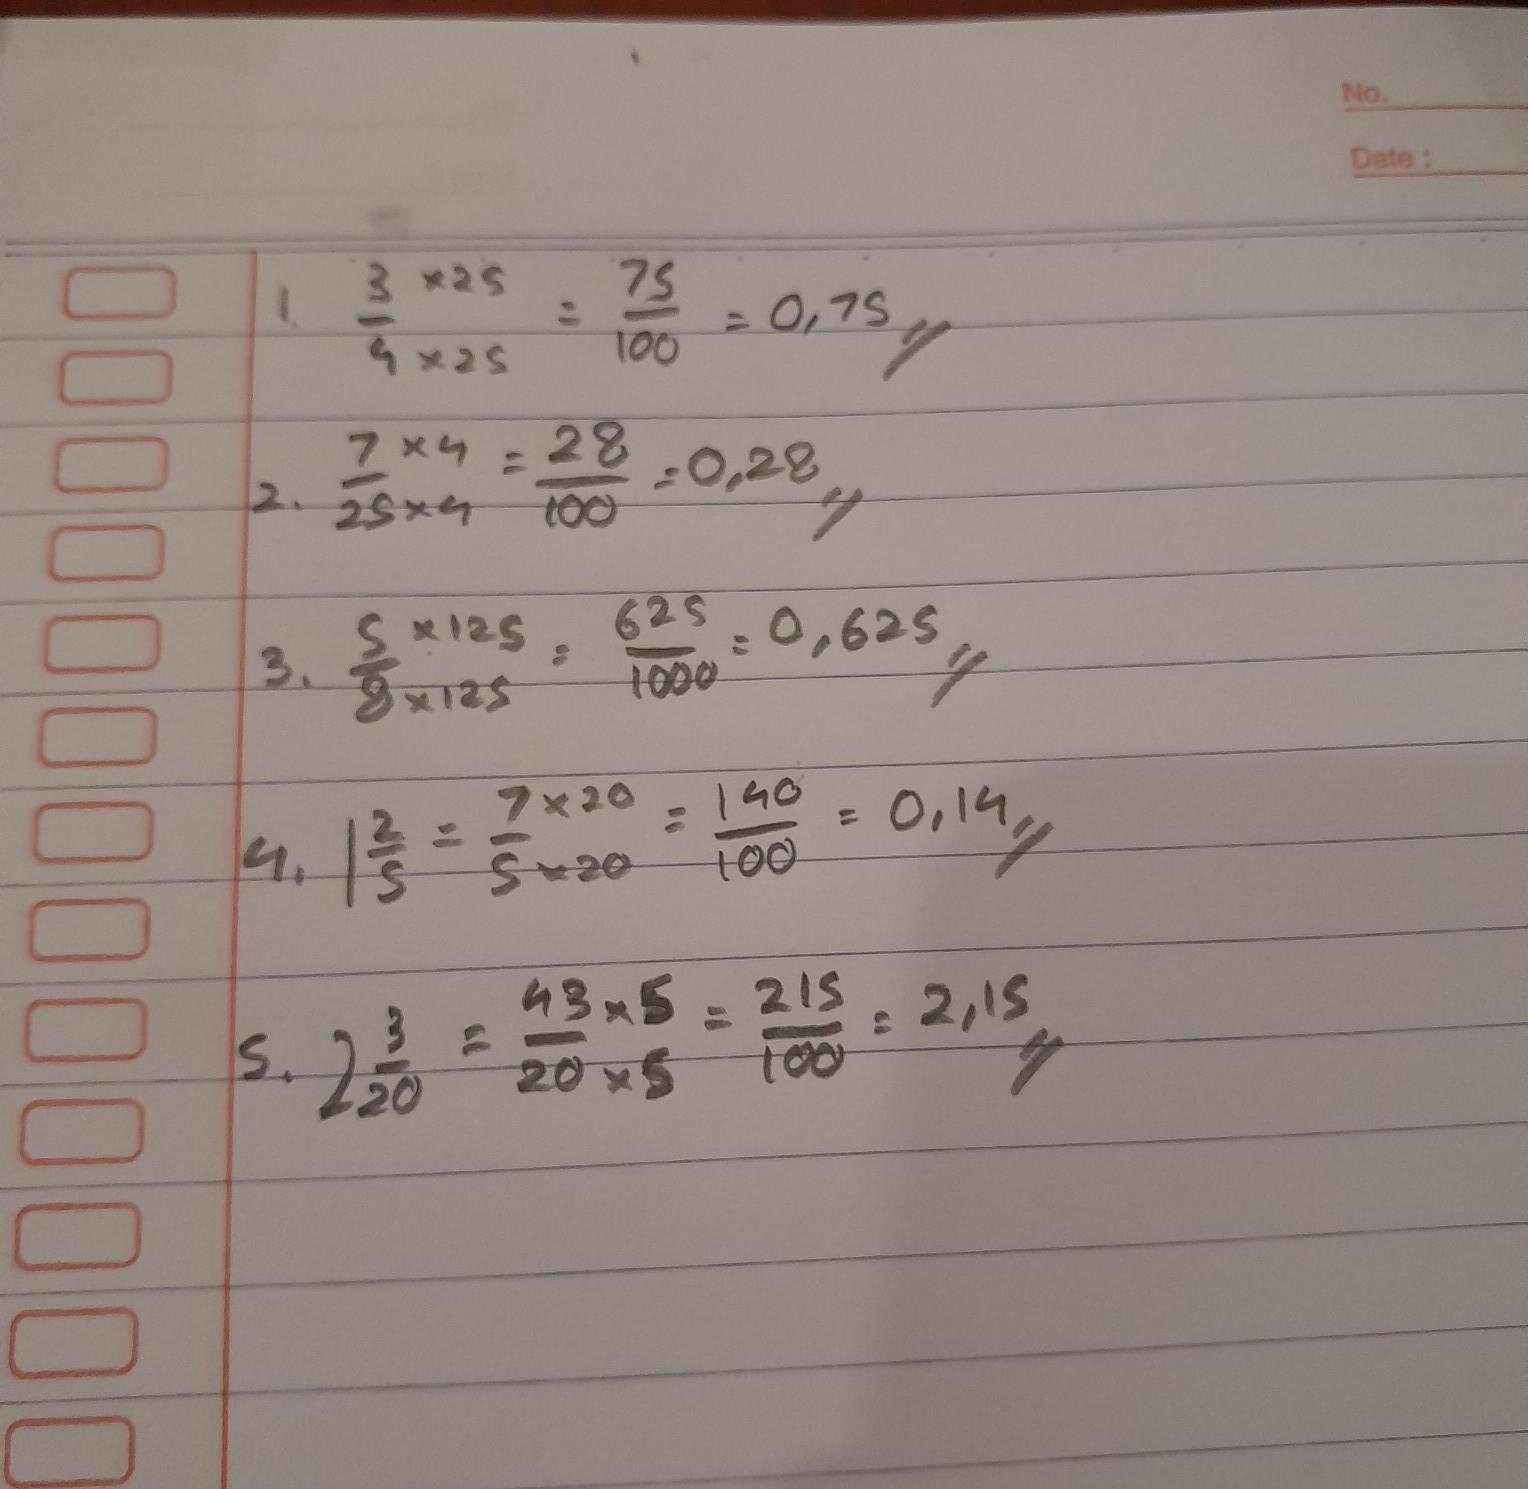 No.
Date :
1. 3/4 ×25/×25 = 75/100 = 0,75
2. 7×4/25×4 = 28/100 = 0,28
3. 5×125/8×125 = 625/1000 = 0,625
4. 1 2/5 = 7×20/5×20 = 140/100 = 0,14
5. 2 3/20 = 43×5/20×5 = 215/100 = 2,15